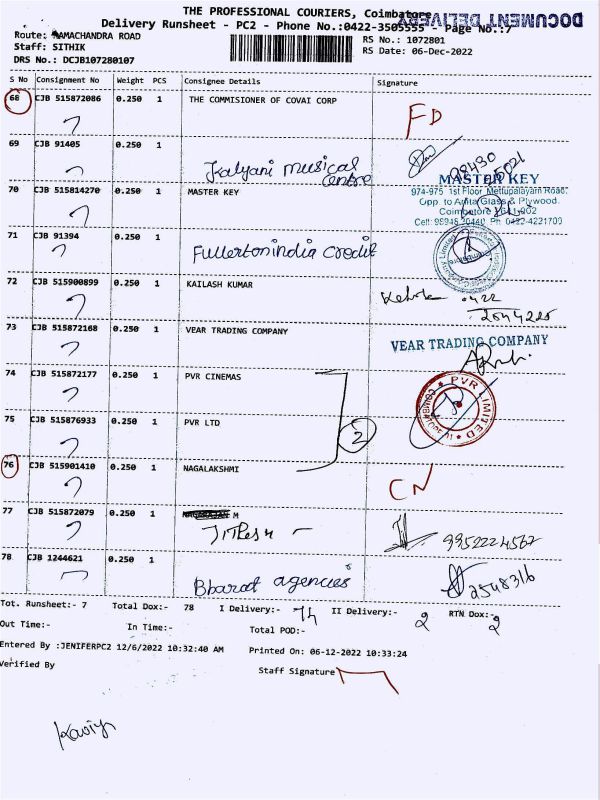 THE PROFESSIONAL COURIERS, Coimbatore
DOCUMENT DELIVERY
Delivery Runsheet - PC2 - Phone No.:0422-3505555 - Page No.:7
Route: RAMACHANDRA ROAD
RS No.: 1072801
Staff: SITHIK
RS Date: 06-Dec-2022
DRS No.: DCJB107280107
S No Consignment No Weight PCS Consignee Details Signature
68 CJB 515872086 0.250 1 THE COMMISIONER OF COVAI CORP FD
69 CJB 91405 0.250 1 Kalyani musical centre
70 CJB 515814270 0.250 1 MASTER KEY
MASTER KEY
974-975 1st Floor Mettupalayam Road.
Opp. to Amita Glass & Plywood.
Coimbatore
71 CJB 91394 0.250 1 Fullertonindia credit
72 CJB 515900899 0.250 1 KAILASH KUMAR 0422
73 CJB 515872168 0.250 1 VEAR TRADING COMPANY
VEAR TRADING COMPANY
74 CJB 515872177 0.250 1 PVR CINEMAS
PVR LIMITED
75 CJB 515876933 0.250 1 PVR LTD
2
76 CJB 515901410 0.250 1 NAGALAKSHMI CN
77 CJB 515872079 0.250 1 M
9952224567
78 CJB 1244621 0.250 1 Bharat agencies 2548316
Tot. Runsheet:- 7 Total Dox:- 78 I Delivery:- 74 II Delivery:- 2 RTN Dox:- 2
Out Time:- In Time:- Total POD:-
Entered By :JENIFERPC2 12/6/2022 10:32:40 AM Printed On: 06-12-2022 10:33:24
Verified By
Staff Signature
Kaviya